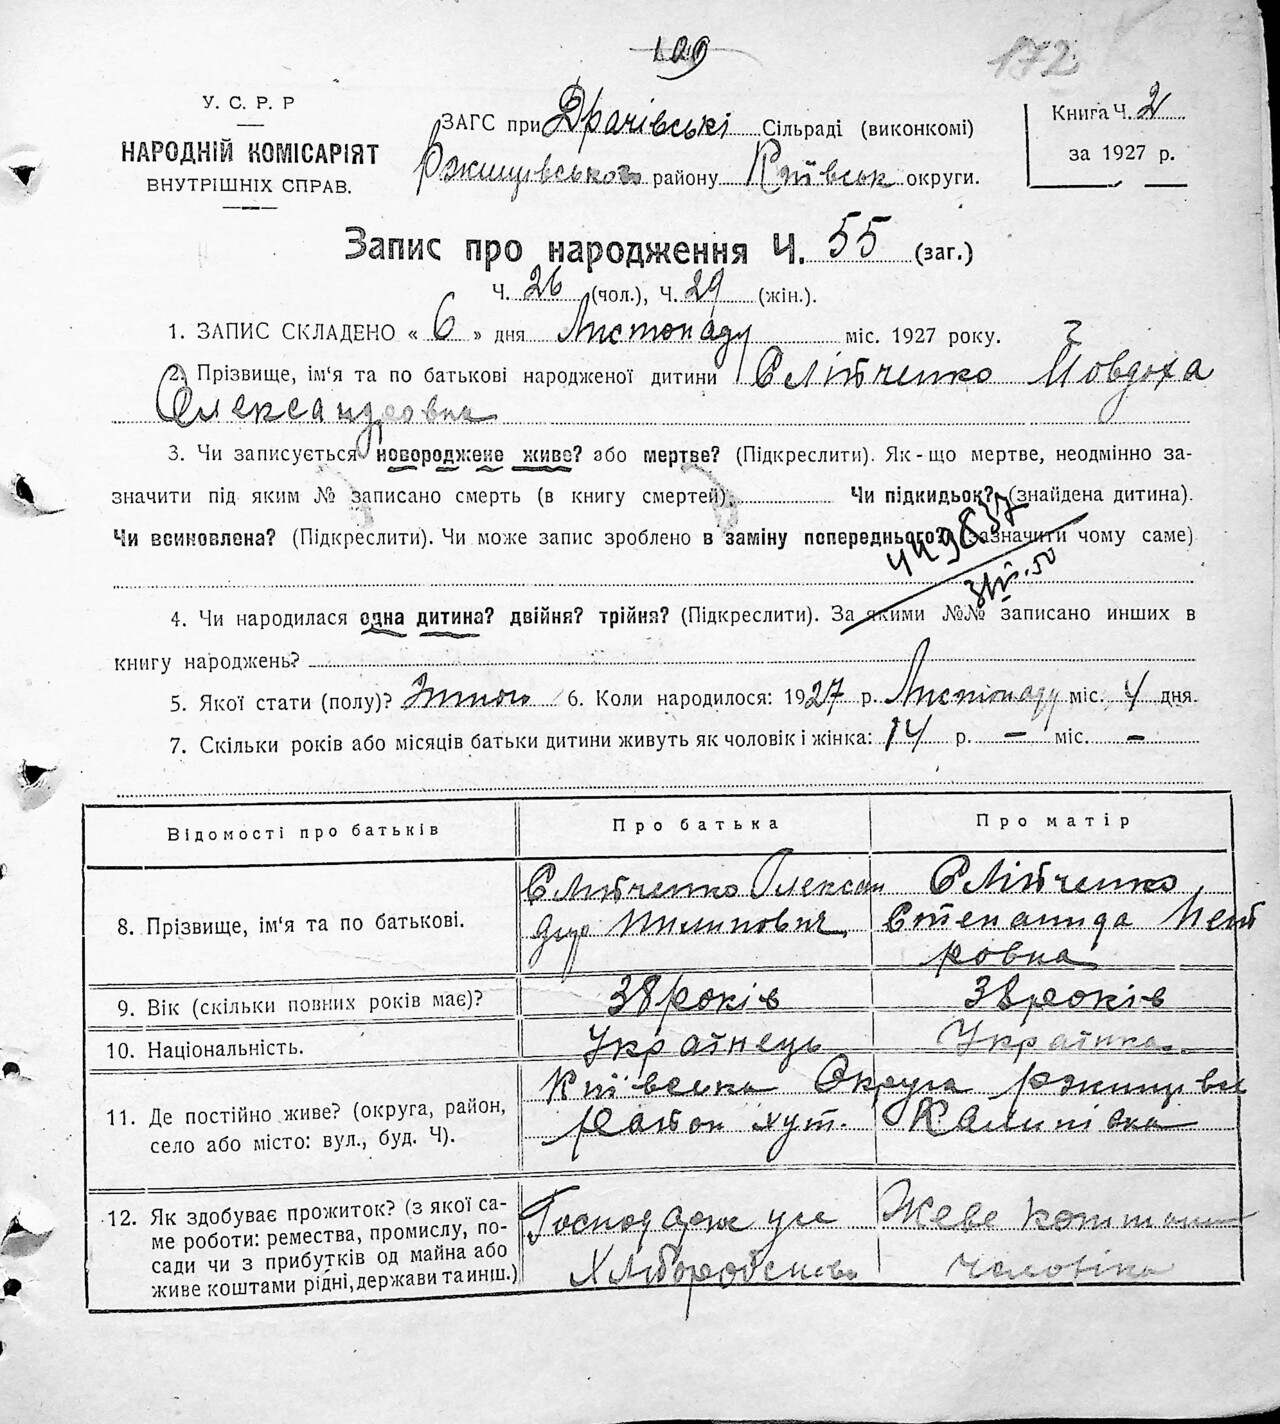 109
172
У. С. Р. Р
НАРОДНІЙ КОМІСАРІЯТ
ВНУТРІШНІХ СПРАВ.
ЗАГС при Драчівські Сільраді (виконкомі)
Ржищівського району Київськ округи.
Книга Ч. 2
за 1927 р.
Запис про народження Ч. 55 (заг.)
Ч. 26 (чол.), Ч. 29 (жін.).
1. ЗАПИС СКЛАДЕНО « 6 » дня Листопаду міс. 1927 року.
2. Прізвище, ім‘я та по батькові народженої дитини Слітченко Йовдоха
Олександровна
3. Чи записується новороджене живе? або мертве? (Підкреслити). Як-що мертве, неодмінно за-
значити під яким № записано смерть (в книгу смертей). Чи підкидьок? (знайдена дитина).
Чи всиновлена? (Підкреслити). Чи може запис зроблено в заміну попереднього? (зазначити чому саме)
4. Чи народилася одна дитина? двійня? трійня? (Підкреслити). За якими №№ записано инших в
книгу народжень?
5. Якої стати (полу)? 6. Коли народилося: 1927 р. Листопаду міс. 4 дня.
7. Скільки років або місяців батьки дитини живуть як чоловік і жінка: 14 р. – міс. –
Відомості про батьків Про батька Про матір
8. Прізвище, ім‘я та по батькові.
Слітченко Олексан
дер Пилипович
Слітченко
Степанида Пет
ровна
9. Вік (скільки повних років має)? 38 років 38 років
10. Національність. Українець Українка
11. Де постійно живе? (округа, район,
село або місто: вул., буд. Ч).
Київська Округа Ржищівск
район хут. Калинівка
12. Як здобуває прожиток? (з якої са-
ме роботи: ремества, промислу, по-
сади чи з прибутків од майна або
живе коштами рідні, держави та инш.)
Хліборобство
Живе коштами
чоловіка